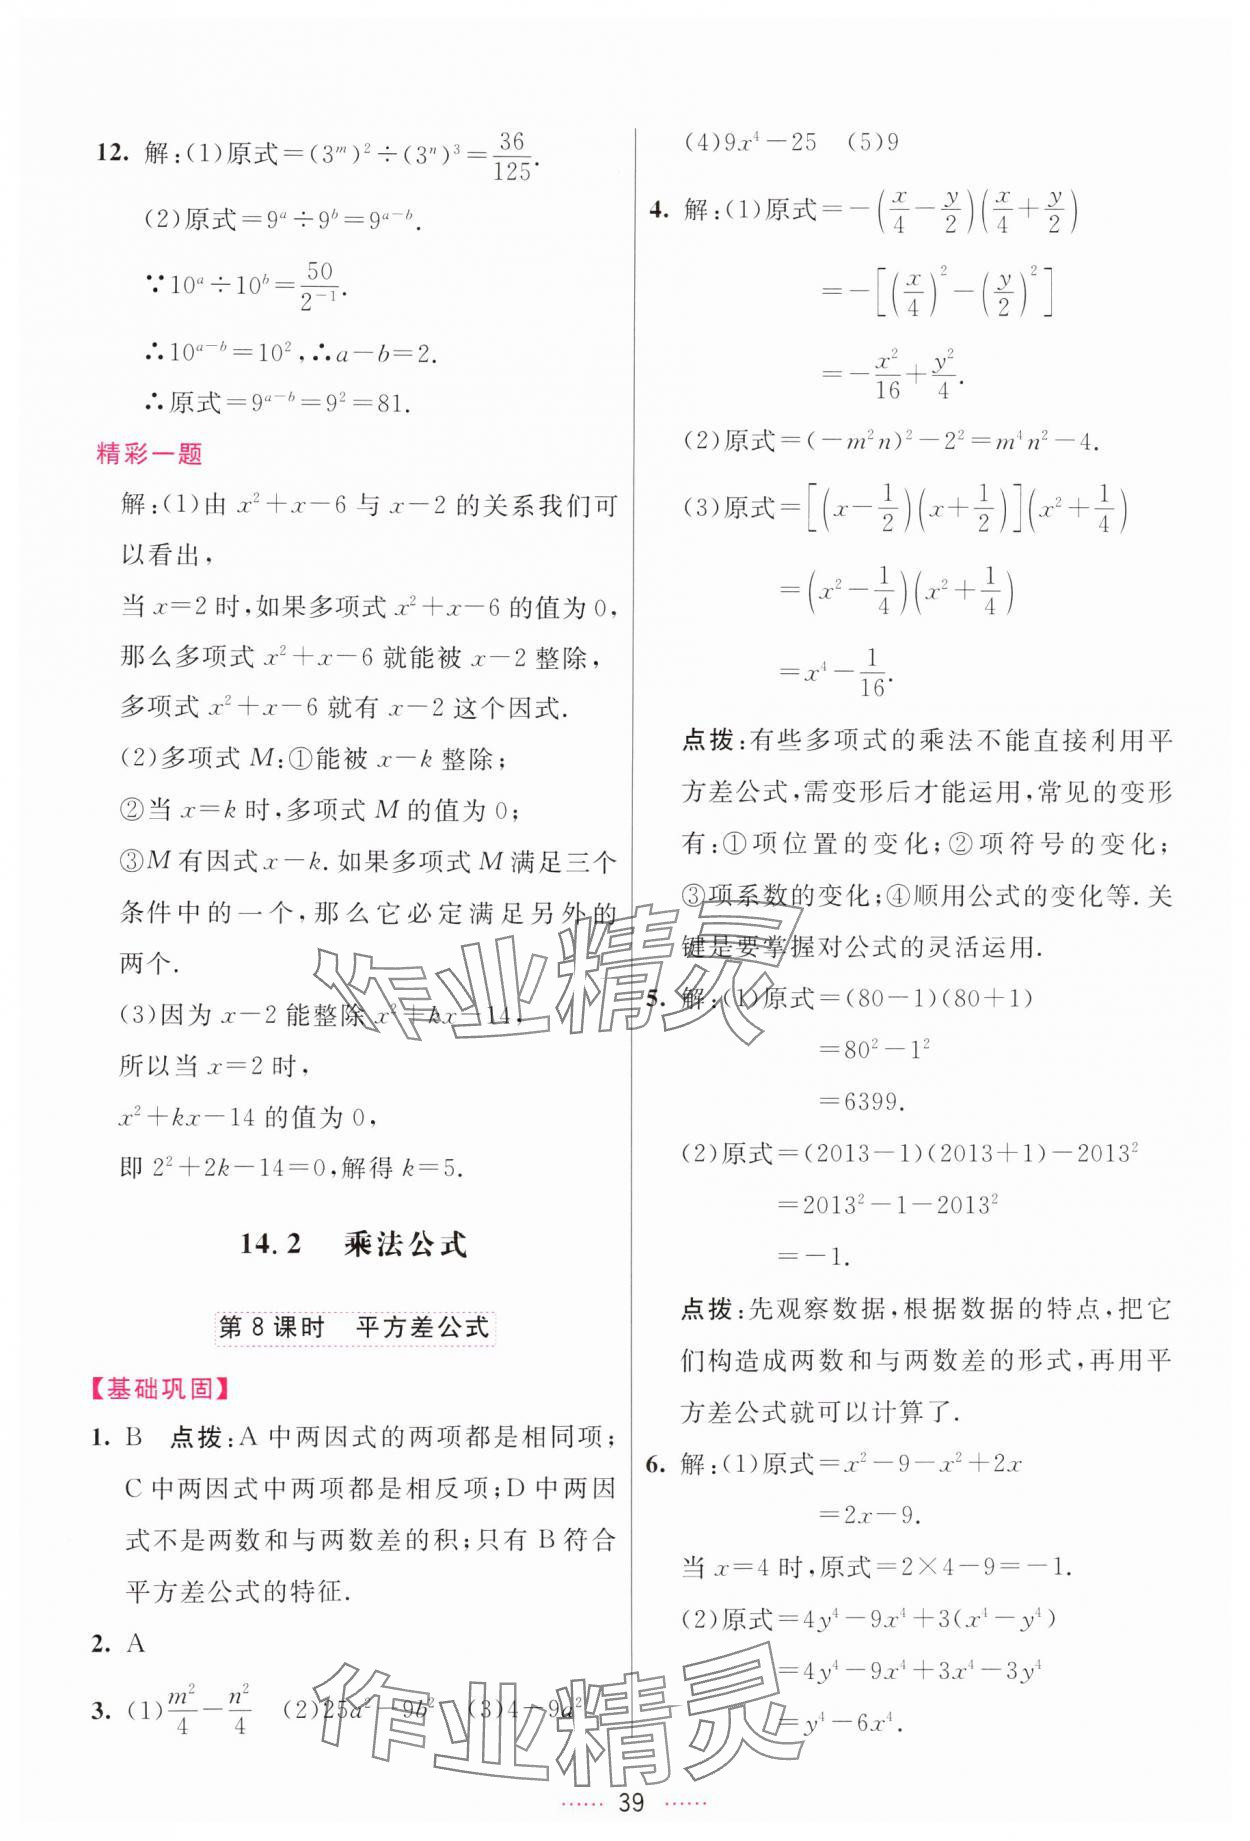 12. 解:(1)原式=(3ᵐ)²÷(3ⁿ)³=36/125.
(2)原式=9ᵃ÷9ᵇ=9ᵃ⁻ᵇ.
∵10ᵃ÷10ᵇ=50/2⁻¹.
∴10ᵃ⁻ᵇ=10²,∴a-b=2.
∴原式=9ᵃ⁻ᵇ=9²=81.
精彩一题
解:(1)由 x²+x-6 与 x-2 的关系我们可
以看出,
当 x=2 时,如果多项式 x²+x-6 的值为 0,
那么多项式 x²+x-6 就能被 x-2 整除,
多项式 x²+x-6 就有 x-2 这个因式.
(2)多项式 M:①能被 x-k 整除;
②当 x=k 时,多项式 M 的值为 0;
③M 有因式 x-k. 如果多项式 M 满足三个
条件中的一个,那么它必定满足另外的
两个.
(3)因为 x-2 能整除 x²+kx-14,
所以当 x=2 时,
x²+kx-14 的值为 0,
即 2²+2k-14=0,解得 k=5.
14.2 乘法公式
第 8 课时 平方差公式
【基础巩固】
1. B 点拨:A 中两因式的两项都是相同项;
C 中两因式中两项都是相反项;D 中两因
式不是两数和与两数差的积;只有 B 符合
平方差公式的特征.
2. A
3. (1)m²/4-n²/4 (2)25a²-9b² (3)4-9a²
(4)9x⁴-25 (5)9
4. 解:(1)原式=-(x/4-y/2)(x/4+y/2)
=-[(x/4)²-(y/2)²]
=-x²/16+y²/4.
(2)原式=(-m²n)²-2²=m⁴n²-4.
(3)原式=[(x-1/2)(x+1/2)](x²+1/4)
=(x²-1/4)(x²+1/4)
=x⁴-1/16.
点拨:有些多项式的乘法不能直接利用平
方差公式,需变形后才能运用,常见的变形
有:①项位置的变化;②项符号的变化;
③项系数的变化;④顺用公式的变化等. 关
键是要掌握对公式的灵活运用.
5. 解:(1)原式=(80-1)(80+1)
=80²-1²
=6399.
(2)原式=(2013-1)(2013+1)-2013²
=2013²-1-2013²
=-1.
点拨:先观察数据,根据数据的特点,把它
们构造成两数和与两数差的形式,再用平
方差公式就可以计算了.
6. 解:(1)原式=x²-9-x²+2x
=2x-9.
当 x=4 时,原式=2×4-9=-1.
(2)原式=4y⁴-9x⁴+3(x⁴-y⁴)
=4y⁴-9x⁴+3x⁴-3y⁴
=y⁴-6x⁴.
作业精灵
作业精灵
······ 39 ······